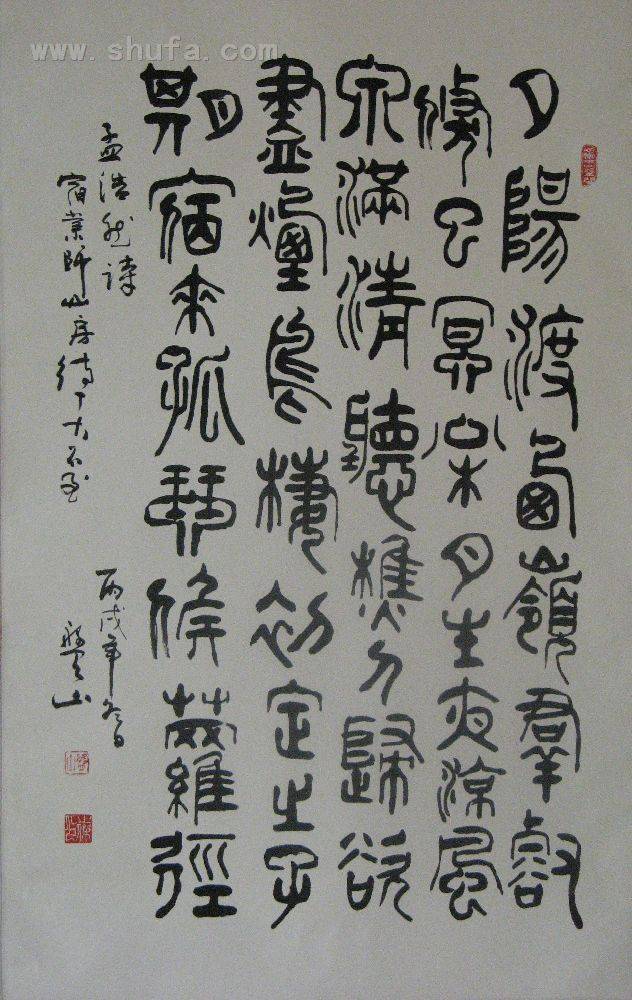 www.shufa.com
夕陽渡西嶺群壑
倏已冥松月生夜涼風
泉滿清聽樵人歸欲
盡煙鳥棲初定之子
期宿來孤琴候蘿徑
孟浩然詩
宿業師山房待丁大不至
丙戌年冬日
山